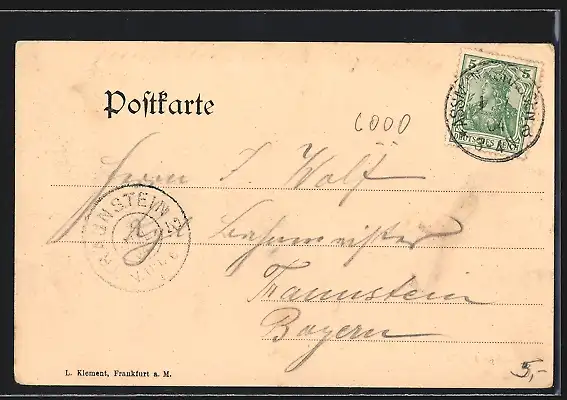 Postkarte
6000
5 5
DEUTSCHES REICH
Herrn J. Wolf
TRAUNSTEIN 2
Bahnmeister
Traunstein
Bayern
L. Klement, Frankfurt a. M.
5,-